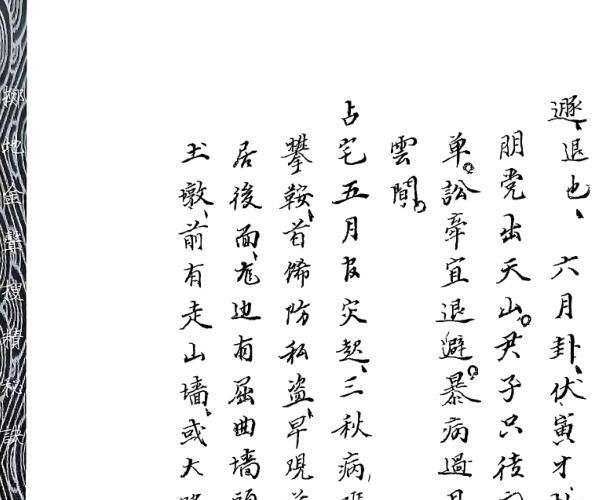 遯、退也、六月卦、伏寅才
朋党出天山。君子只待
单。訟牵宜退避。暴病過
雲間。
占宅五月官灾起、三秋病,
攀鞍、首飾防私盗、早覌
居後面、左边有屈曲墙頭
土墩、前有走山墙、或大路
擲地金聲搜精秘訣